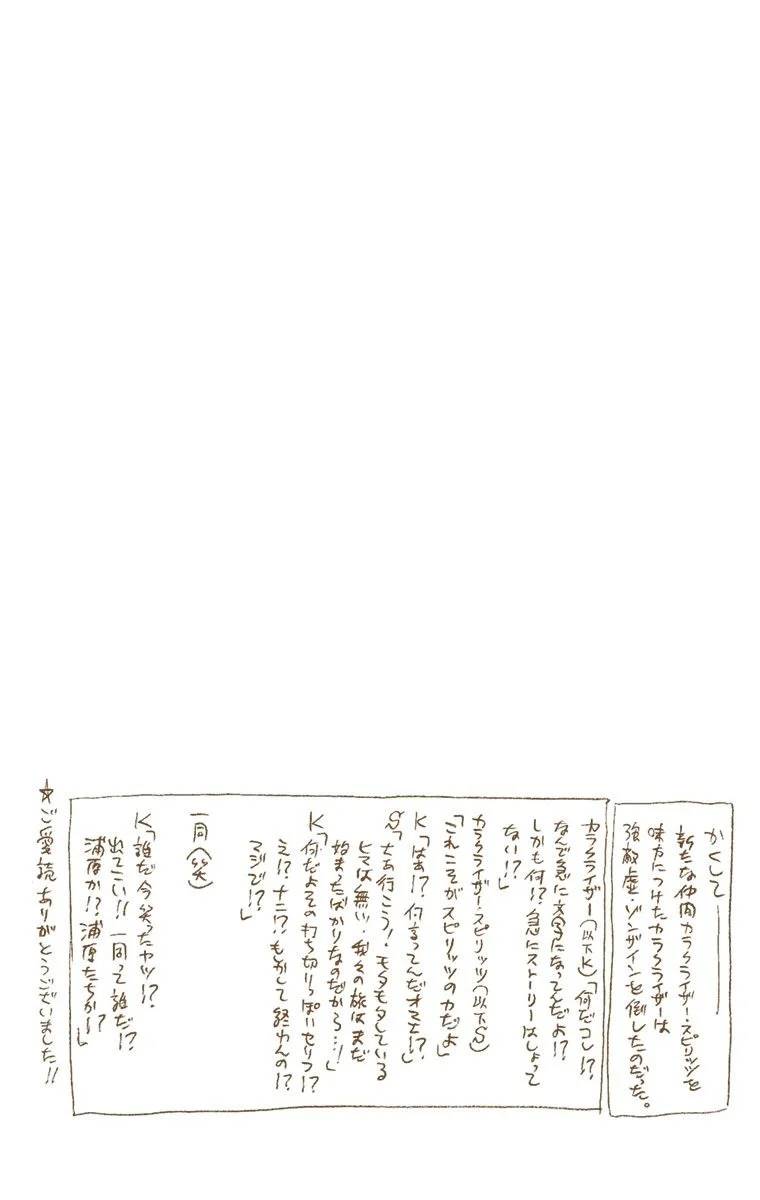 かくして―――
新たな仲間カラクライザー・スピリッツを
味方につけたカラクライザーは
強敵虚・ゾンザインを倒したのだった。
カラクライザー(以下K)「何だコレ!?
なんで急に文字になってんだよ!?
しかも何!?急にストーリーはしょって
ない!?」
カラクライザー・スピリッツ(以下S)
「これこそがスピリッツの力だよ」
K「はぁ!?何言ってんだオマエ!?」
S「さあ行こう!モタモタしている
ヒマは無い、我々の旅はまだ
始まったばかりなのだから…!」
K「何だよその打ち切りっぽいセリフ!?
え!?ナニ!?もしかして終わんの!?
マジで!?」
一同(笑)
K「誰だ今笑ったヤツ!?
出てこい!!一同って誰だ!?
浦原か!?浦原たちか!?」
☆ご愛読ありがとうございました!!